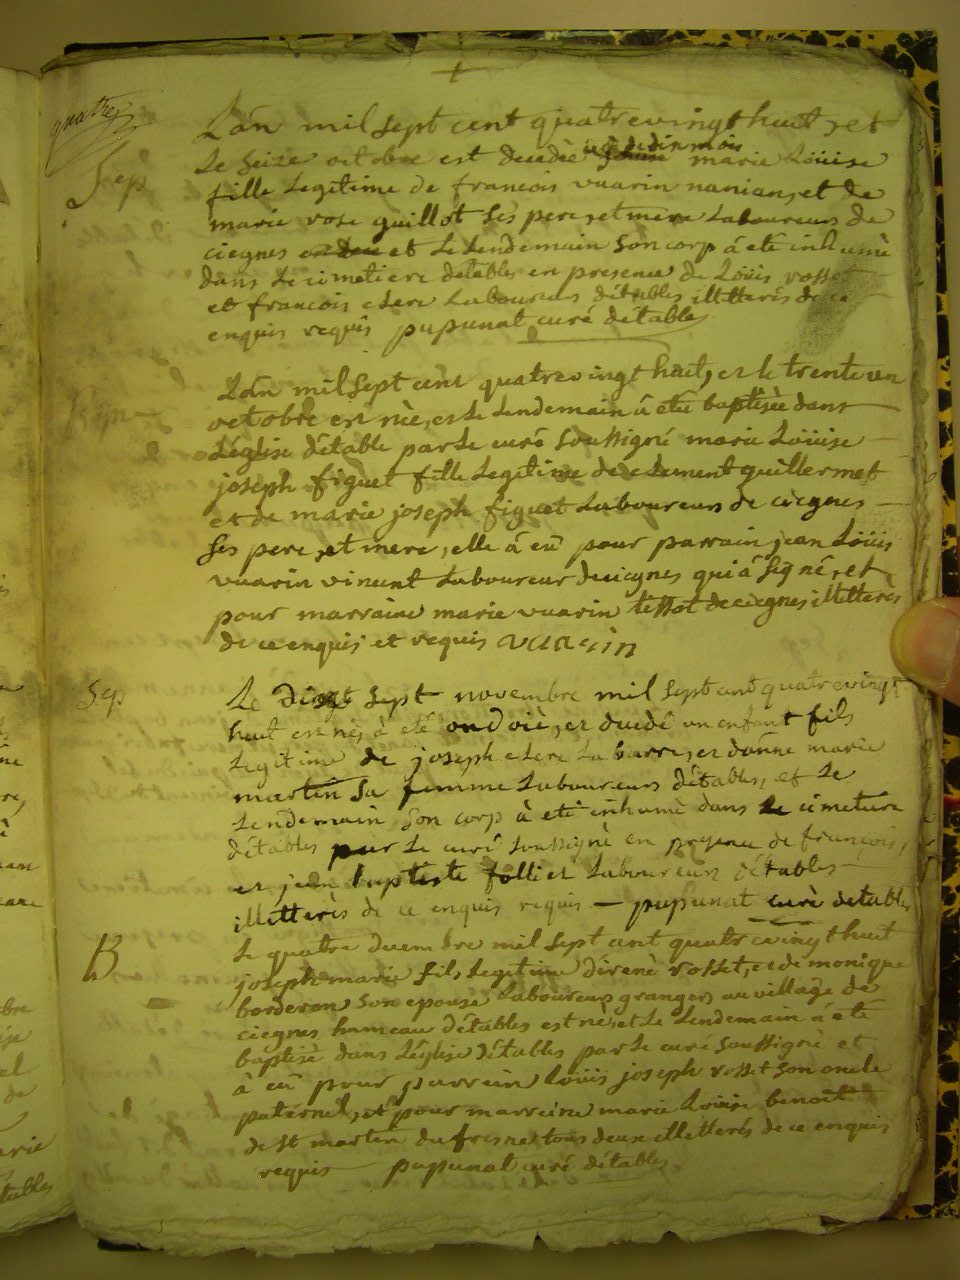 quatre
L'an mil sept cent quatrevingt huit, et
Sep
Le seize octobre est decedée agée de dix mois marie Loüise
fille Legitime de francois vuarin nanian, et de
marie rose guillot ses pere, et mere Laboureurs de
ciegnes et Le Lendemain son corp á eté inhumé
dans Le cimetiere détables en presence de Loüis rosset
et francois clerc Laboureurs détables illitterés de ce
enquis requis pupunat curé détables
L'an mil sept cent quatrevingt huit, et le trente un
octobre est née, et Le Lendemain á eté baptisée dans
L'église détable par Le curé soussigné marie Loüise
joseph figuet fille Legitime de clement guillermet
et de marie joseph figuet Laboureurs de ciegnes
ses pere, et mere, elle á eü pour parrain jean Loüis
vuarin vincent Laboureur de ciegnes qui á signé, et
pour marraine marie vuarin tissot de ciegnes illitterés
de ce enquis et requis vuarin
Sep
Le dix sept novembre mil sept cent quatrevingt
huit est né, á eté ondoié, et decedé un enfant fils
Legitime de joseph clerc La barre, et d'anne marie
martin sa femme Laboureurs détables, et Le
Lendemain son corp á eté inhumé dans Le cimetiere
détables par Le curé soussigné en presence de françois,
et jean baptiste folliet Laboureurs détables
illitterés de ce enquis requis — pupunat curé détables
B
Le quatre decembre mil sept cent quatrevingt huit
joseph marie fils Legitime di rené rosset, et de monique
borderon son epouse Laboureurs grangers au village de
ciegnes hameau d'étables est né, et Le Lendemain á eté
baptisé dans L'église d'étables par Le curé soussigné et
à eü pour parrein Loüis joseph rosset son oncle
paternel, et pour marreine marie Loüise benoît
de St martin du fresne tous deux illitterés de ce enquis
requis pupunat curé détables